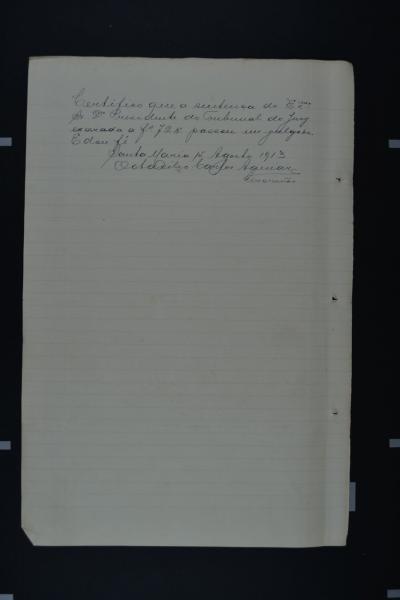 Certifico que a sentença do Ex.mo
Sr. Dr. Presidente do Tribunal do Jury
exarada a fs 72 passou em julgado.
E dou fé
Santa Maria 15 Agosto 1913
Carlos Aguiar
Escrivão